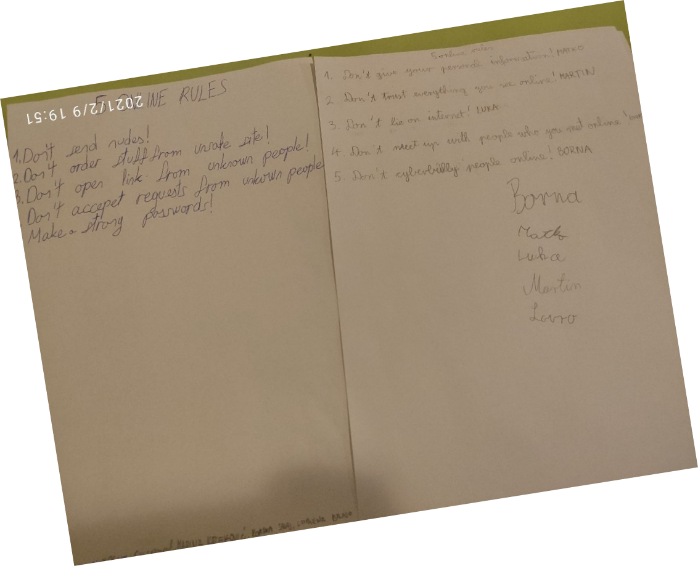 5 ONLINE RULES
2021/2/9 19:51
1. Don't send nudes!
2. Don't order stuff from unsafe site!
3. Don't open link from unknown people!
Don't accepet requests from unkown people
Make a strong passwords!
5 online rules
1. Don't give your personal information! MARKO
2. Don't trust everything you see online! MARTIN
3. Don't lie on internet! LUKA
4. Don't meet up with people who you met online!
5. Don't cyberbully people online! BORNA
Borna
Marko
Luka
Martin
Lovro